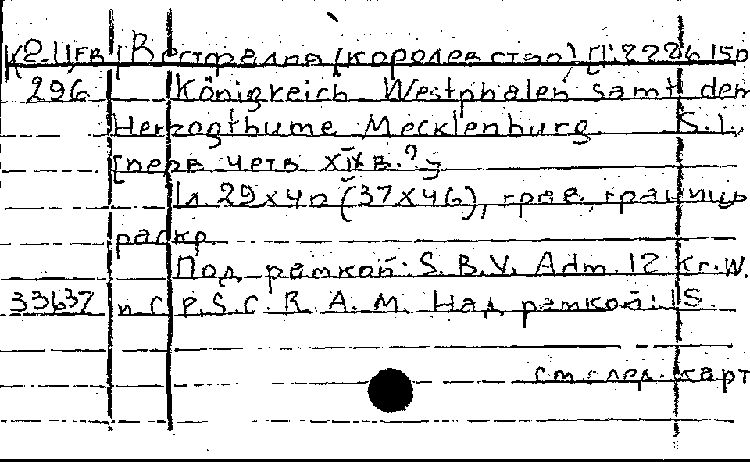 К2-Ц,ЕВ Вестфалия (королевство) [1:222615о
296 Königreich Westphalen samt dem
Herzogthume Mecklenburg. S.l.,
[перв четв XIX в.?]
1л 29x40 (37x46), грав, границы
раскр.
Под рамкой: S.B.V. Adm. 12 Kr.W.
33637 n C P.S.C.R.A.M. Над рамкой: S.
см след. карт